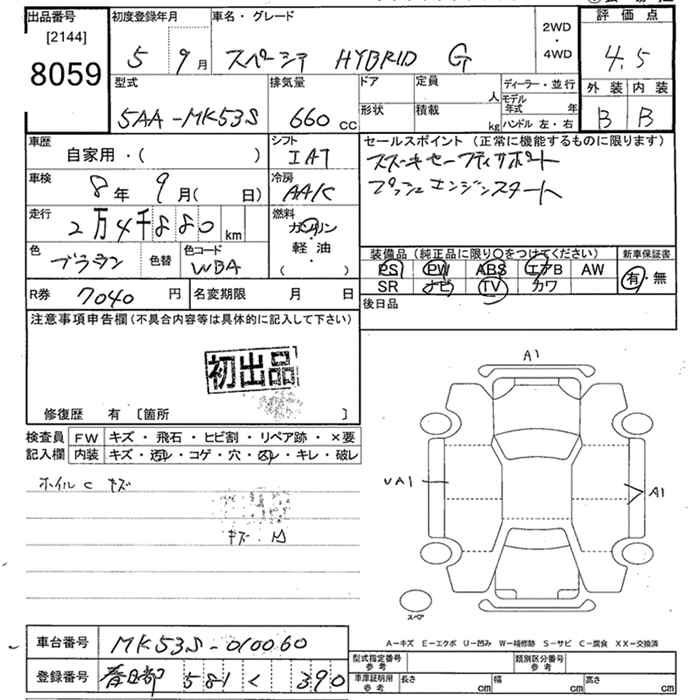 出品番号 初度登録年月 車名・グレード 2WD・4WD 評価点
[2144]
8059 5年 9月 スペーシア HYBRID G 4.5
型式 排気量 ドア 定員 人 ディーラー・並行 外装 内装
5AA-MK53S 660 CC 形状 積載 kg モデル年式 年 ハンドル 左・右 B B
車歴 シフト セールスポイント (正常に機能するものに限ります)
自家用・( ) IAT スズキセーフティサポート
車検 冷房 プッシュエンジンスタート
8年 9月( 日) AAC
走行 燃料
2万4千880 km ガソリン・軽油・( )
色 色替 色コード 装備品 (純正品に限り○をつけてください) 新車保証書
ブラウン WBA PS PW ABS エアB AW 有・無
SR ナビ TV カワ
R券 7040円 名変期限 月 日 後日品
注意事項申告欄 (不具合内容等は具体的に記入して下さい)
初出品
修復歴 有 [箇所 ]
A1
検査員 FW キズ・飛石・ヒビ割・リペア跡・×要
記入欄 内装 キズ・汚レ・コゲ・穴・凹・キレ・破レ
ホイルC キズ
UA1
A1
キズ・凹
スペア
A-キズ E-エクボ U-凹み W-補修跡 S-サビ C-腐食 XX-交換済
車台番号 MK53S-010060
型式指定番号 参考 類別区分番号 参考
登録番号 春日部 581 く 390
車庫証明用 参考 長さ cm 幅 cm 高さ cm